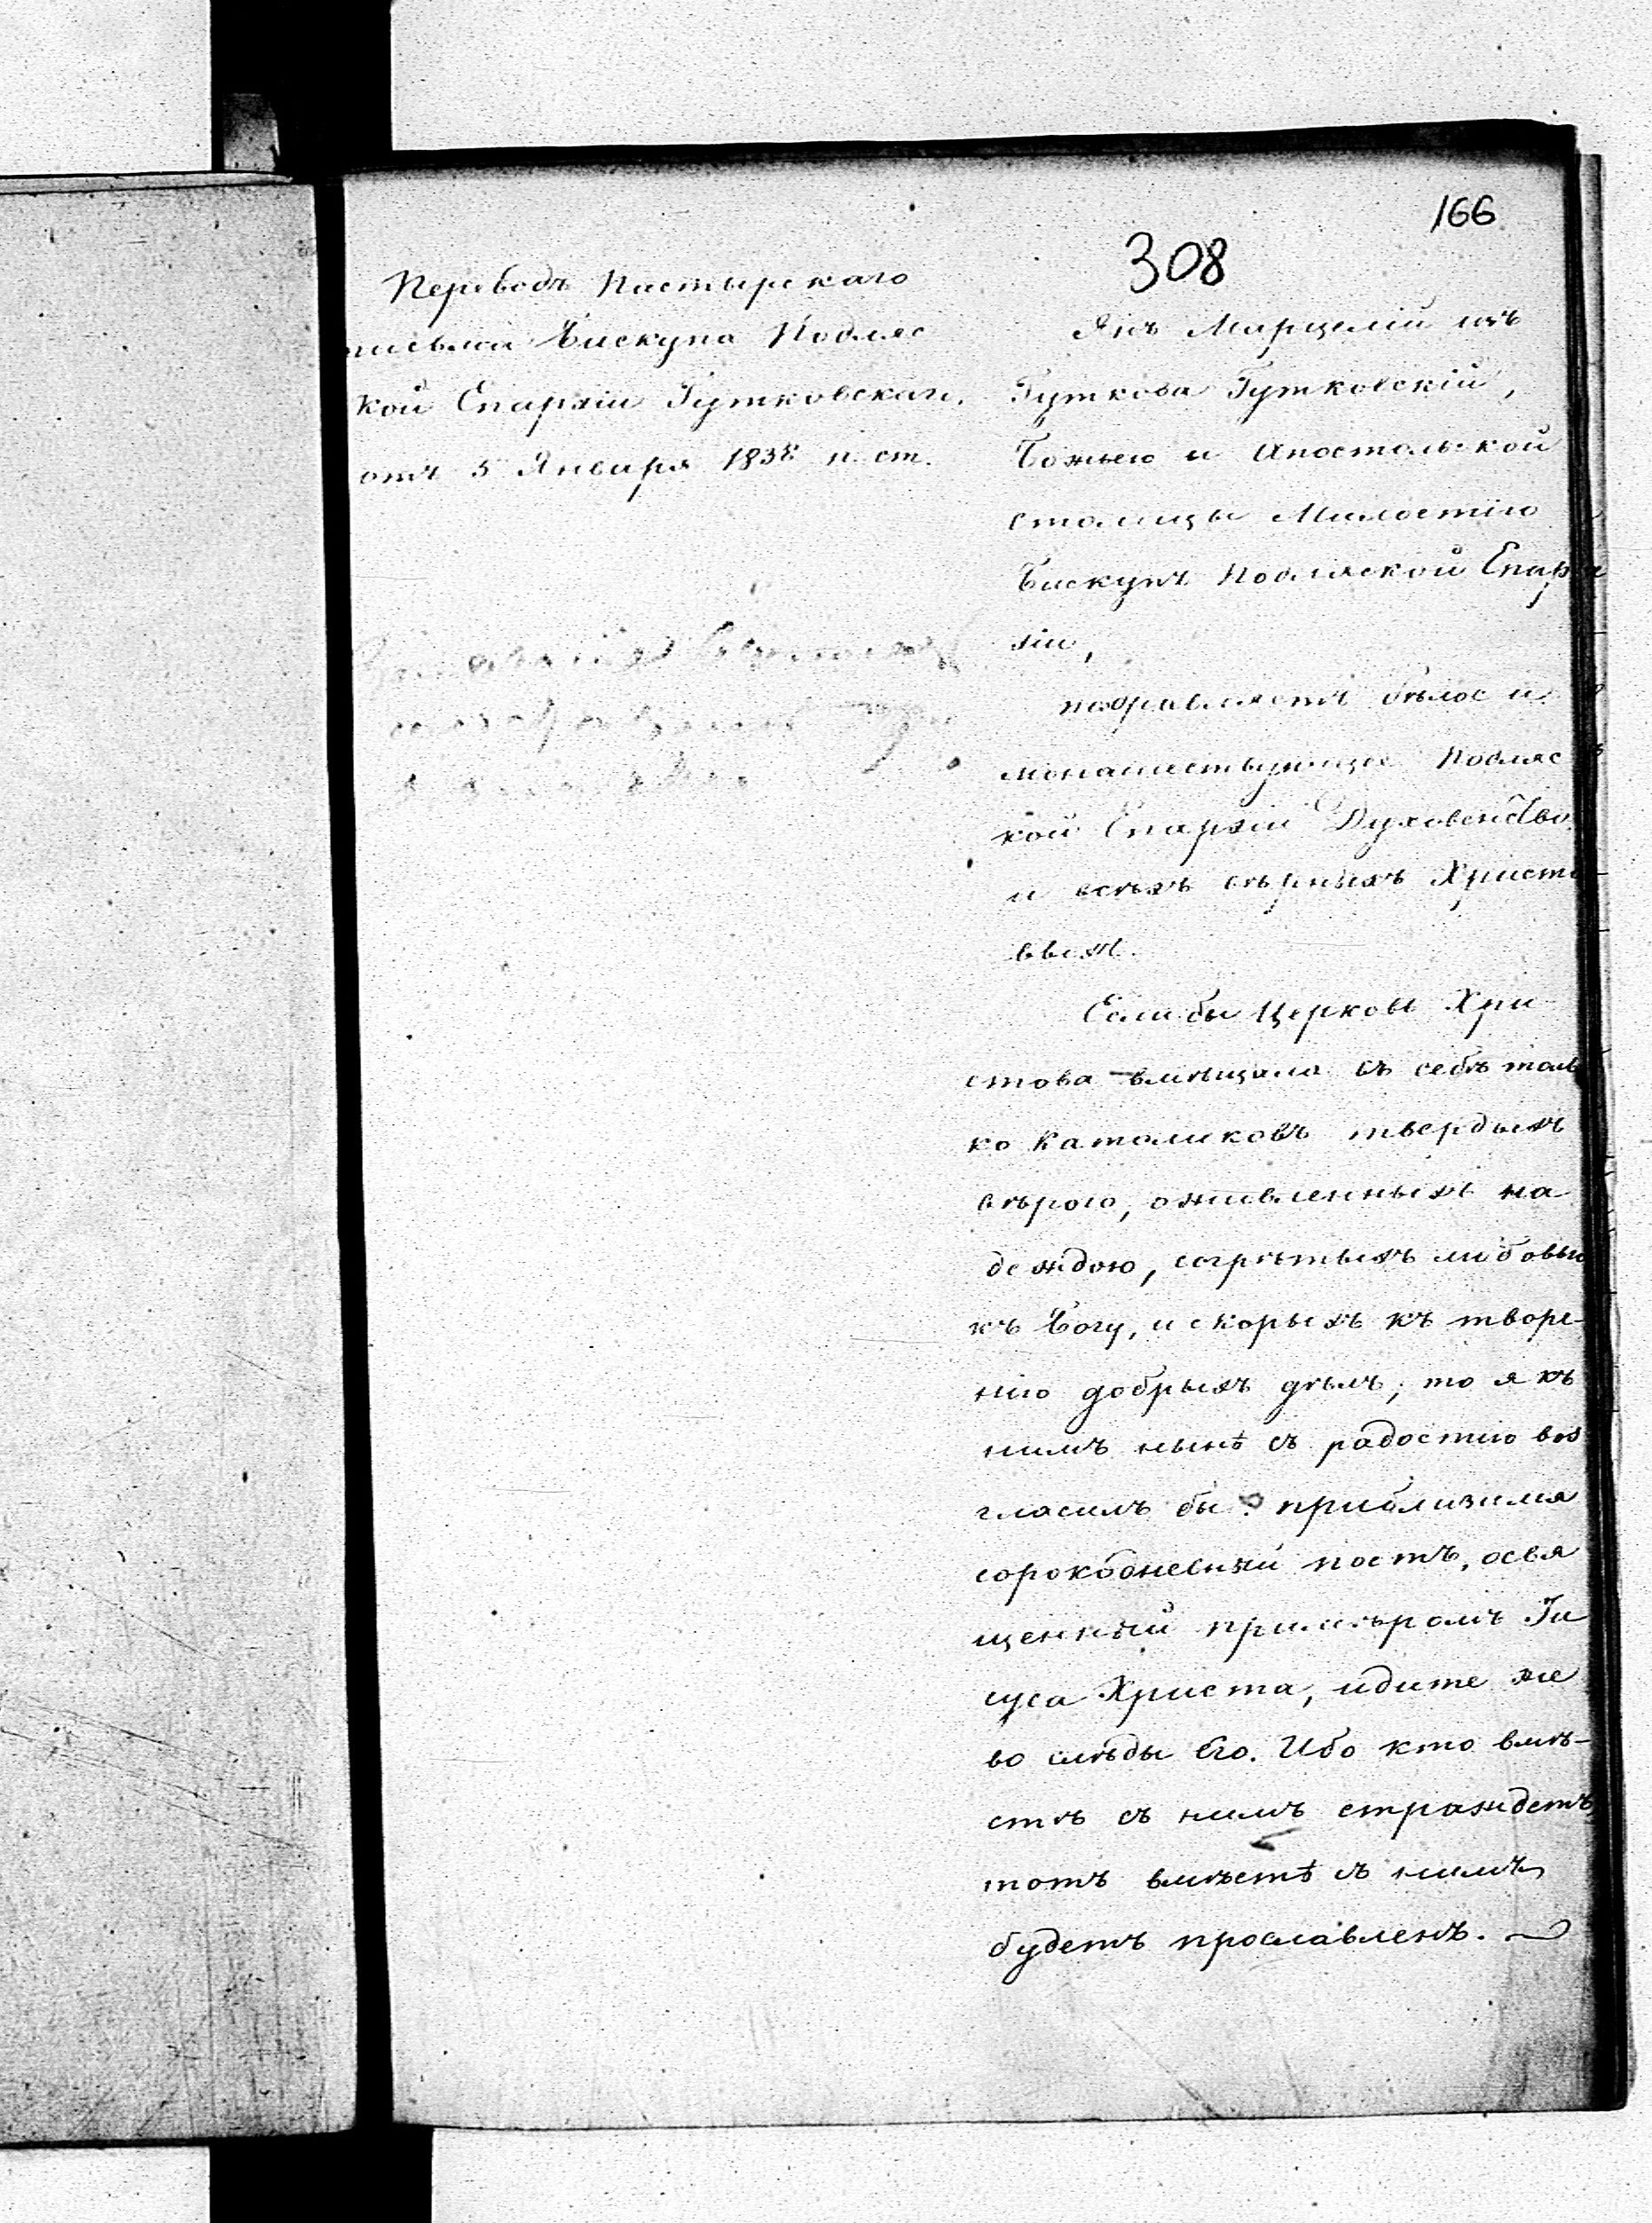 166
308
Переводъ Пастырскаго
письма Бискупа Подляс
кой Епархіи Гутковскаго.
отъ 5 Января 1838 н. ст.
Янъ Марцелій изъ
Гуткова Гутковскій,
Божьею и Апостольской
столицы Милостію
Бискупъ Подляской Епар
хіи,
поздравляетъ бѣлое и
монашествующее Подляс
кой Епархіи Духовенство
и всѣхъ вѣрныхъ Христо
выхъ.
Если бы Церковь Хри
стова вмѣщала въ себѣ толь
ко Католиковъ твердыхъ
вѣрою, оживленныхъ на
деждою, согрѣтыхъ любовью
къ Богу, и скорыхъ къ творе-
нію добрыхъ дѣлъ; то я къ
нимъ нынѣ съ радостію воз
гласилъ бы: приблизился
сорокодневный постъ, освя
щенный примѣромъ Іи
суса Христа, идите же
во слѣды Его. Ибо кто вмѣ-
стѣ съ нимъ страждетъ,
тотъ вмѣстѣ съ нимъ
будетъ прославленъ.